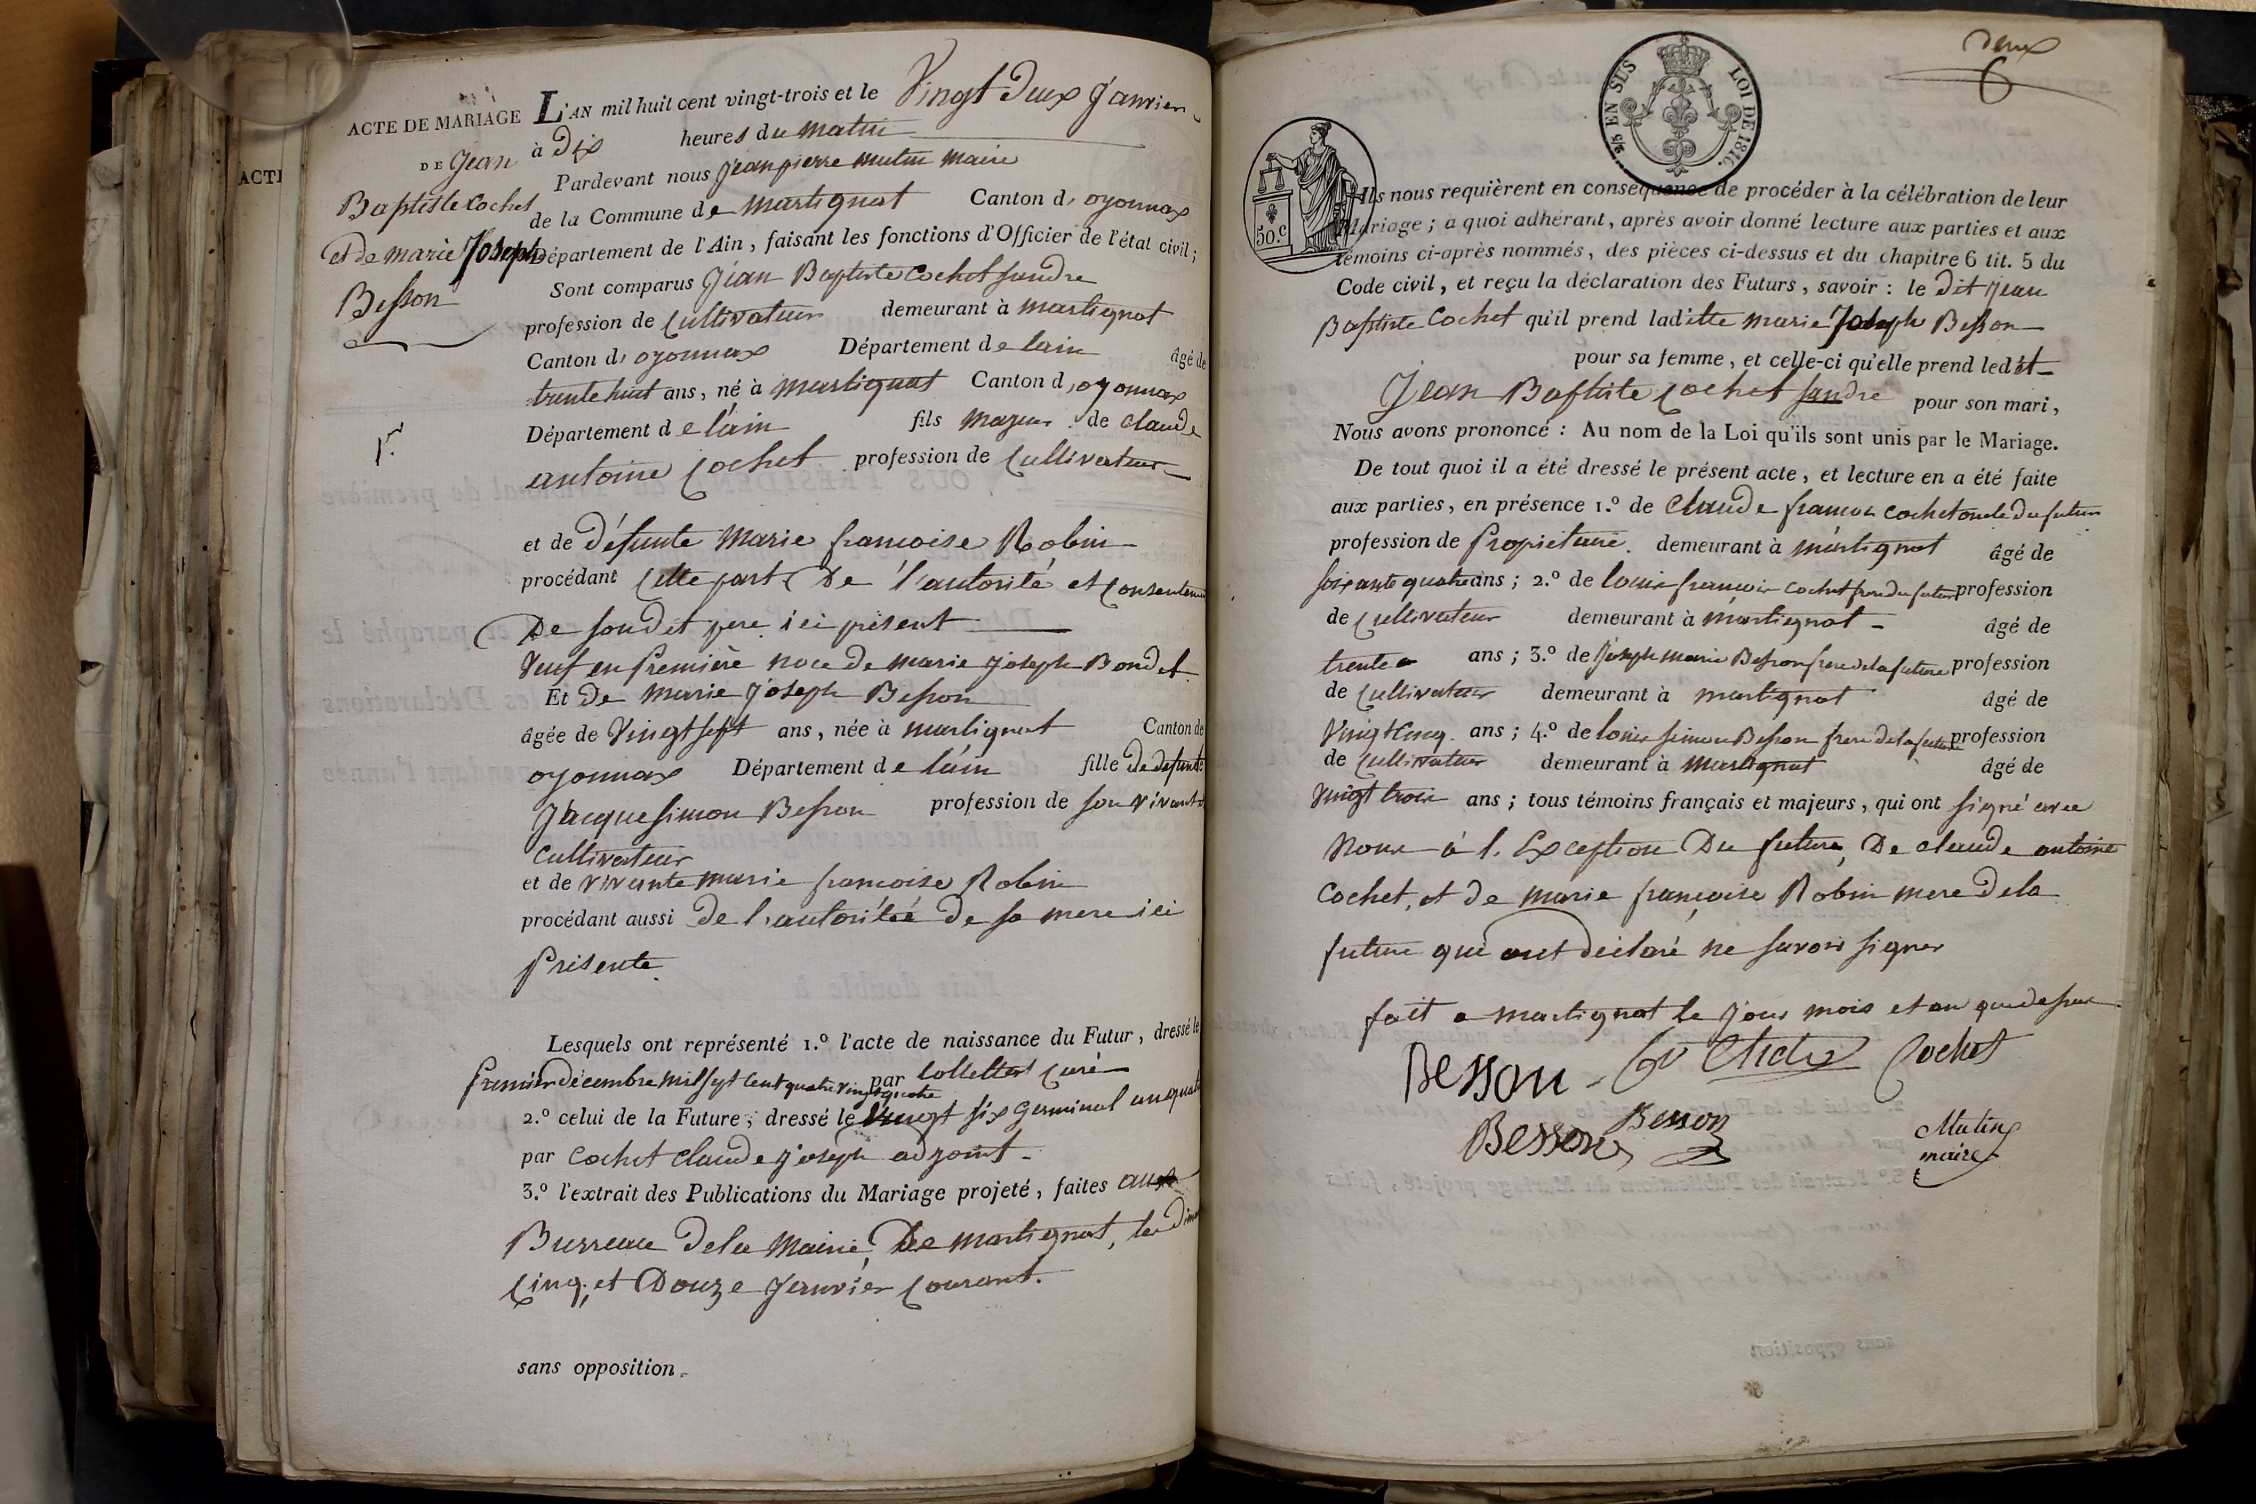 ACTE DE MARIAGE
DE Jean
Baptiste Cochet
et de marie Joseph
Besson
ACTE
L'AN mil huit cent vingt-trois et le Vingt Deux Janvier
à Dix heures du matin
Pardevant nous Jean pierre mutin maire
de la Commune de martignat Canton d, oyonnax
Département de l'Ain, faisant les fonctions d'Officier de l'état civil;
Sont comparus Jean Baptiste Cochet sandre
profession de Cultivateur demeurant à martignat
Canton d, oyonnax Département de lain âgé de
trente huit ans, né à martignat Canton d, oyonnax
Département de l'ain fils majeur de claude
antoine Cochet profession de Cultivateur
et de défunte Marie francoise Robin
procédant Cette part De l'autorité et Consentement
De sondit pere ici présent
Veuf en première noce de marie joseph Bondet
Et De marie Joseph Besson
âgée de Vingt sept ans, née à martignat Canton de
oyonnax Département de l'ain fille de defunte
Jacque simon Besson profession de son vivant
Cultivateur
et de vivante marie francoise Robin
procédant aussi de l'autoritéé de sa mere ici
présente
Lesquels ont représenté 1.º l'acte de naissance du Futur, dressé le
premier décembre mil sept cent quatre vingt quatre par Collettat Curé
2.º celui de la Future; dressé le Vingt six germinal an quatre
par Cochet claude joseph adjoint
3.º l'extrait des Publications du Mariage projeté, faites aux
Burreau dela Mairie, De martignat, les
Cinq, et Douze Janvier Courant.
sans opposition.
deux
6
LOI DE 1816.
50.c
Ils nous requièrent en conséquence de procéder à la célébration de leur
Mariage; a quoi adhérant, après avoir donné lecture aux parties et aux
témoins ci-après nommés, des pièces ci-dessus et du chapitre 6 tit. 5 du
Code civil, et reçu la déclaration des Futurs, savoir: le dit Jean
Baptiste Cochet qu'il prend ladite marie Joseph Besson
pour sa femme, et celle-ci qu'elle prend ledit
Jean Baptiste Cochet sandre pour son mari,
Nous avons prononcé: Au nom de la Loi qu'ils sont unis par le Mariage.
De tout quoi il a été dressé le présent acte, et lecture en a été faite
aux parties, en présence 1.º de Claude francois cochet oncle du futur
profession de Propietaire demeurant à martignat âgé de
soixante quatre ans; 2.º de louis francois cochet frere du futur profession
de Cultivateur demeurant à martignat âgé de
trente ans; 3.º de joseph marie Besson frere dela future profession
de Cultivateur demeurant à martignat âgé de
Vingt Cinq ans; 4.º de louis simon Besson frere dela future profession
de Cultivateur demeurant à martignat âgé de
Vingt trois ans; tous témoins français et majeurs, qui ont signé avec
Nous à l'Exception Du future, De claude antoine
Cochet, et de marie françoise Robin mere dela
future qui ont déclaré ne savoir signer
fait a martignat le jour mois et an que dessus
Besson Cochet
Besson Besson Mutin
maire